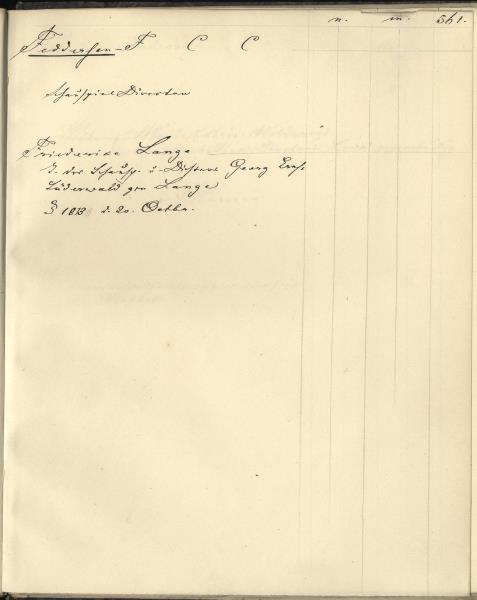 n. m. 561.
Feddersen - F C C
Schauspiel Director
Friederike Lange
T. des Schausp. u. Dichters Georg Ernst
Lüderwald gen Lange
d. 20. Octbr.